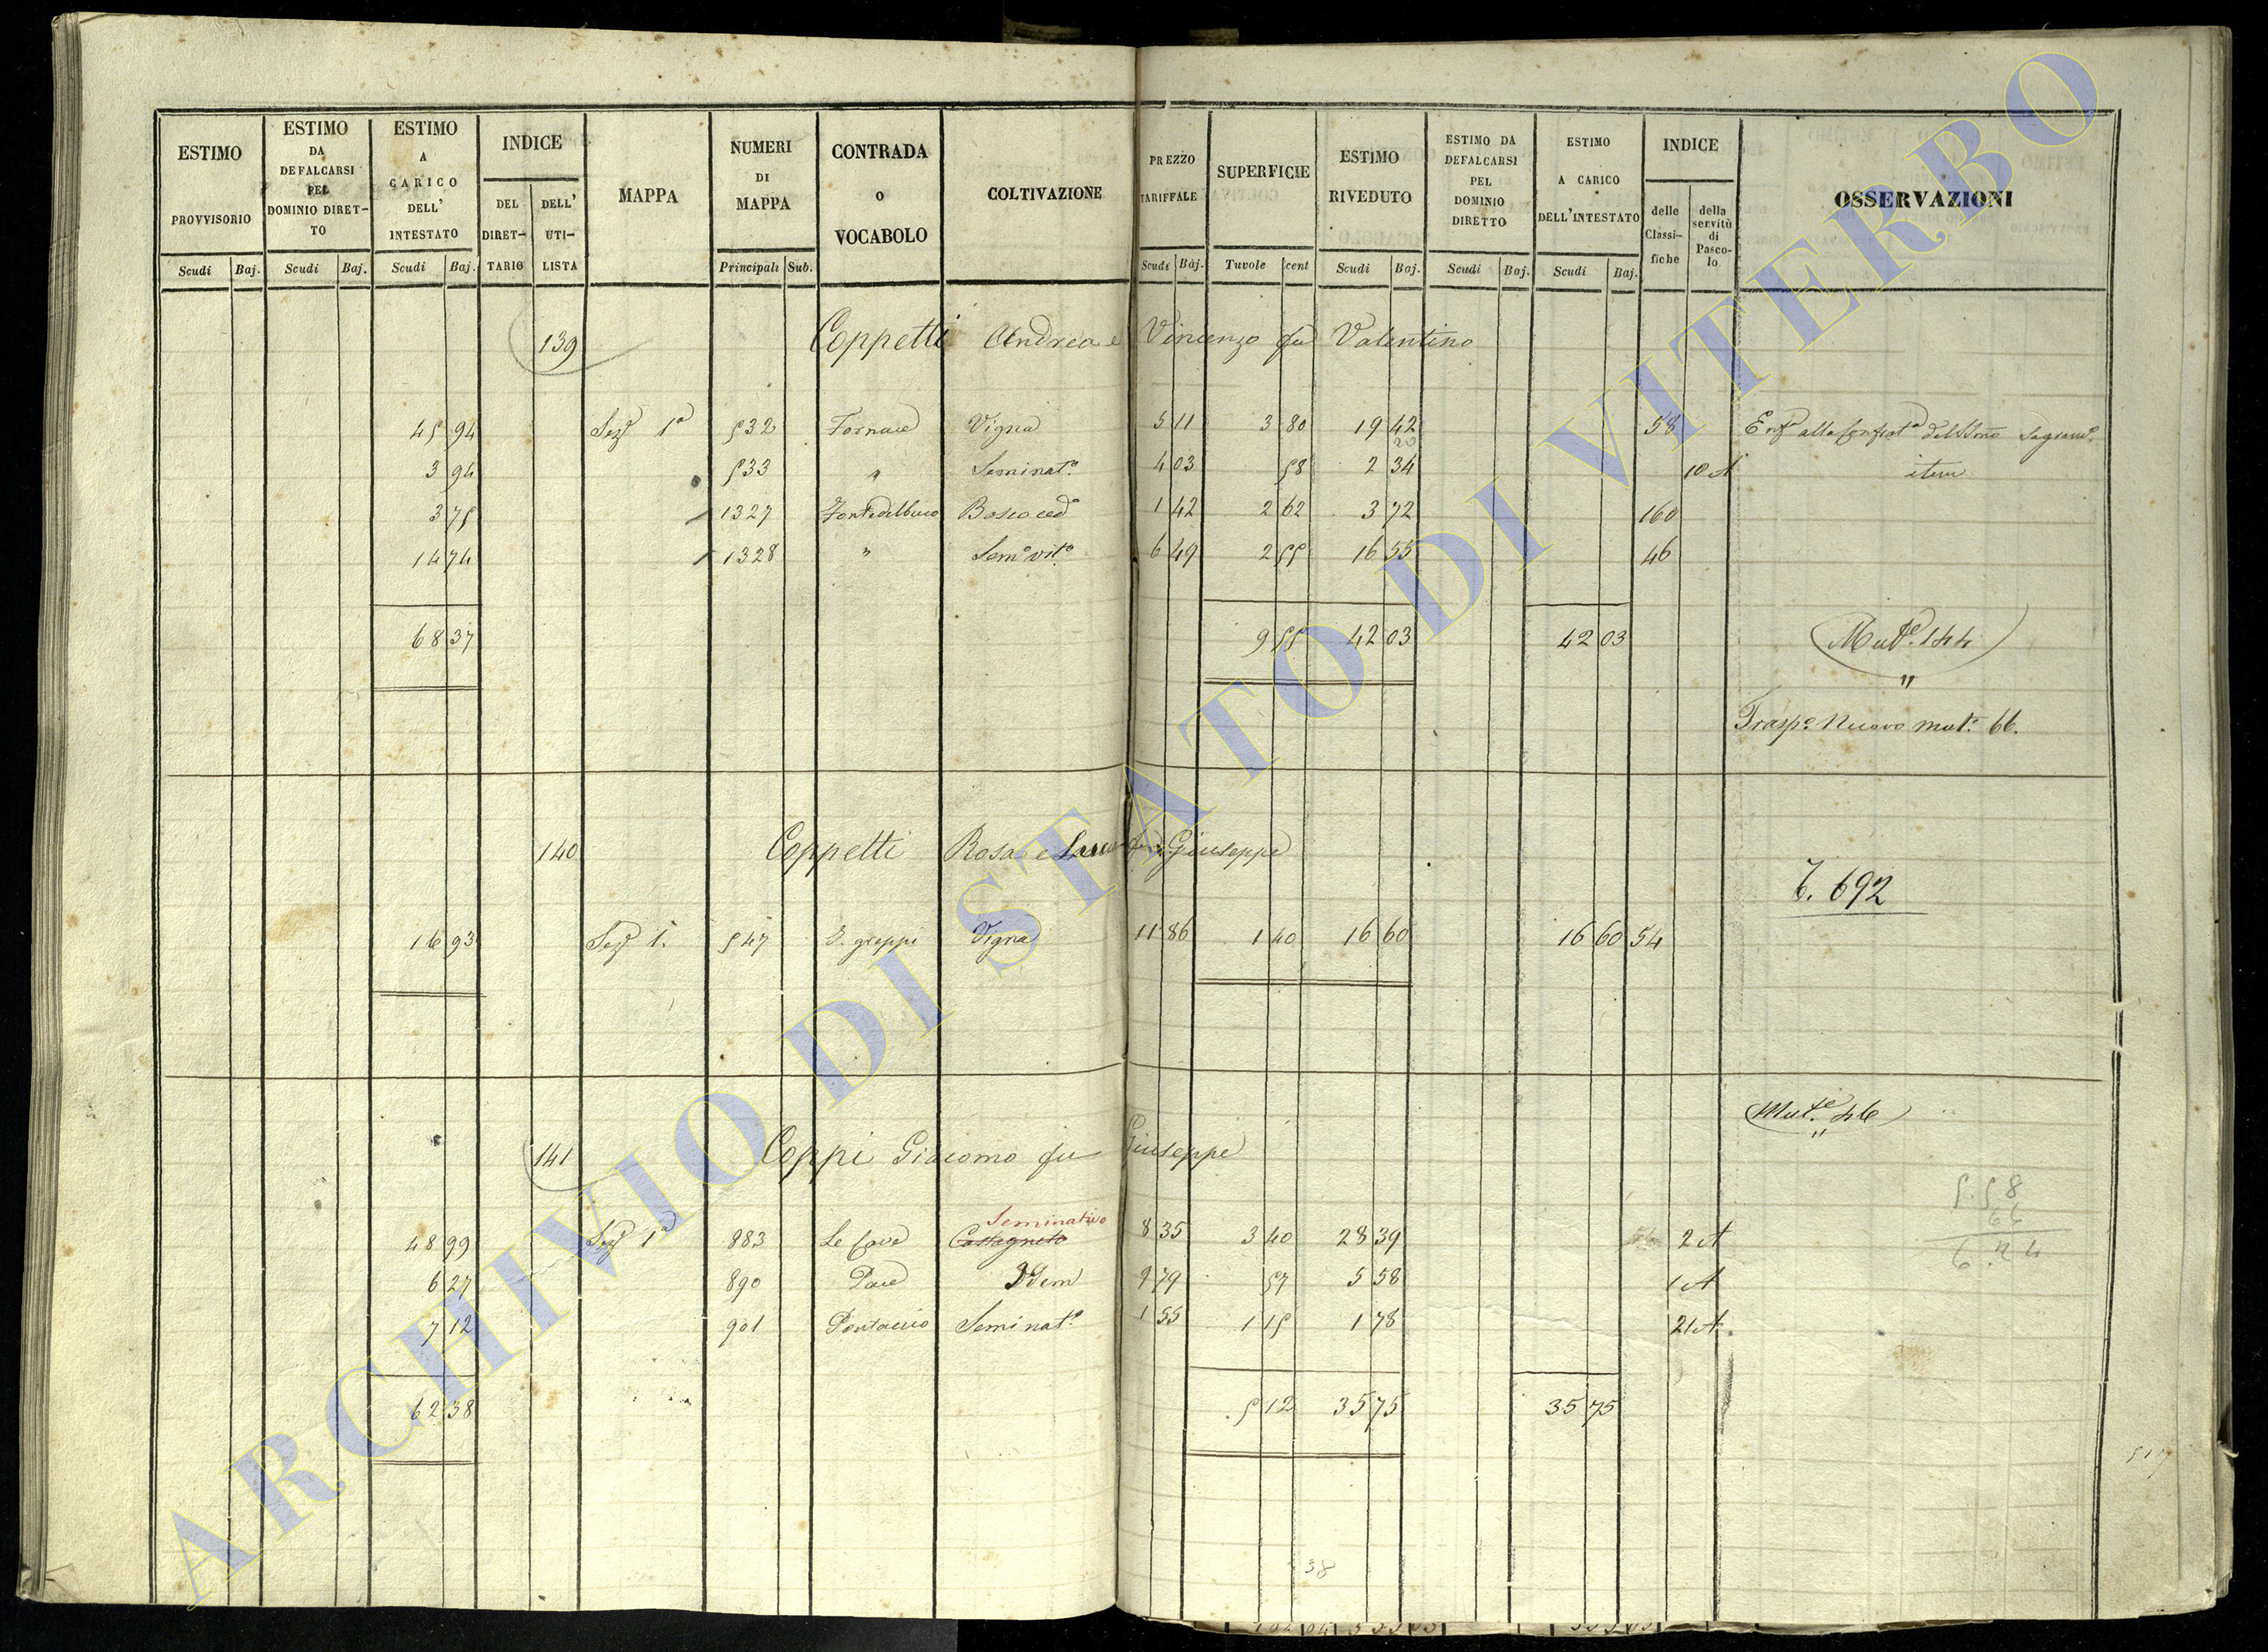 ESTIMO PROVVISORIO | ESTIMO DA DEFALCARSI PEL DOMINIO DIRET-TO | ESTIMO A CARICO DELL' INTESTATO | INDICE | MAPPA | NUMERI DI MAPPA | CONTRADA o VOCABOLO | COLTIVAZIONE | PREZZO TARIFFALE | SUPERFICIE | ESTIMO RIVEDUTO | ESTIMO DA DEFALCARSI PEL DOMINIO DIRETTO | ESTIMO A CARICO DELL'INTESTATO | INDICE | OSSERVAZIONI
DEL DIRET-TARIO | DELL' UTI-LISTA | delle Classi-fiche | della servitù di Pasco-lo
Scudi | Baj. | Scudi | Baj. | Scudi | Baj. | Principali | Sub. | Scudi | Baj. | Tavole | cent | Scudi | Baj. | Scudi | Baj. | Scudi | Baj.
139 Coppetti Andrea e Vincenzo fu Valentino
45 94 Sezᵉ 1ª 532 Fornace Vigna 5 11 3 80 19 42 58 alla del
20
3 94 533 " Seminatº. 4 03 58 2 34 10 A item
3 75 1327 Bosco cedº 1 42 2 62 3 72 160
14 74 1328 " Semº vitº. 6 49 2 55 16 55 46
68 37 9 55 42 03 42 03 Mutᵉ. 144
"
Traspº Nuovo matº. 66.
140 Coppetti Rosa e fu Giuseppe
T. 692
16 93 Sezᵉ 1. 547 greppi Vigna 11 86 1 40 16 60 16 60 54
Mutᵉ. 46
"
141 Coppi Giacomo fu Giuseppe
5.58
66
6.24
Seminativo
48 99 Sezᵉ 1ª 883 Le Cave Castagneto 8 35 3 40 28 39 2 A
6 27 890 Pace Idem 9 79 57 5 58 1 A
7 12 901 Pontaccio Seminatº. 1 55 1 15 1 78 21 A.
62 38 5 12 35 75 35 75
38
ARCHIVIO DI STATO DI VITERBO